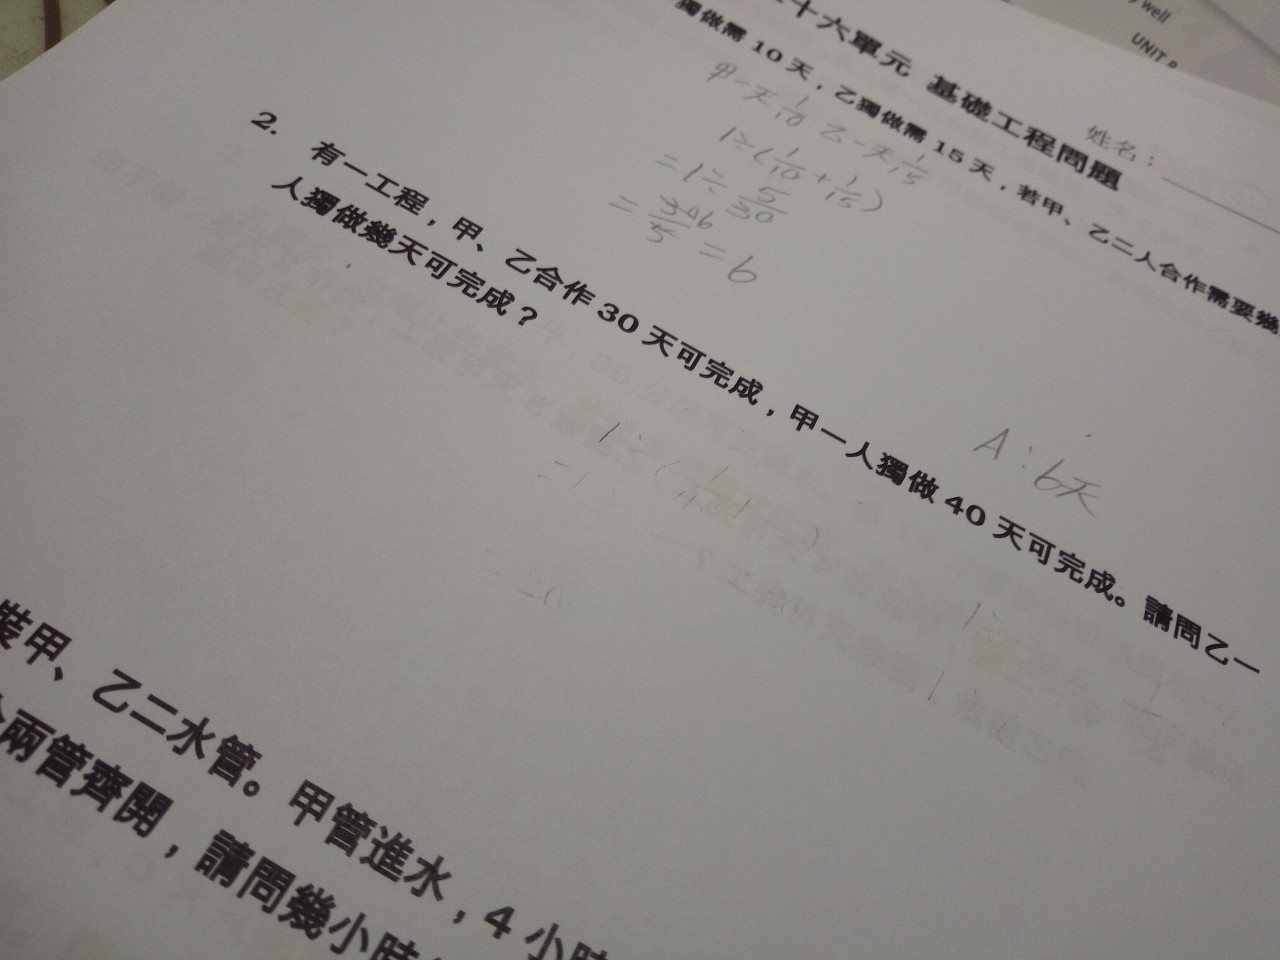 y well
UNIT
十六單元 基礎工程問題
姓名：
獨做需 10 天，乙獨做需 15 天，若甲、乙二人合作需要幾
甲一天 1/10 乙一天 1/15
1÷(1/10+1/15)
=1÷5/30
=30/5=6
A:6天
2. 有一工程，甲、乙合作 30 天可完成，甲一人獨做 40 天可完成。請問乙一
人獨做幾天可完成？
裝甲、乙二水管。甲管進水，4 小時
兩管齊開，請問幾小時